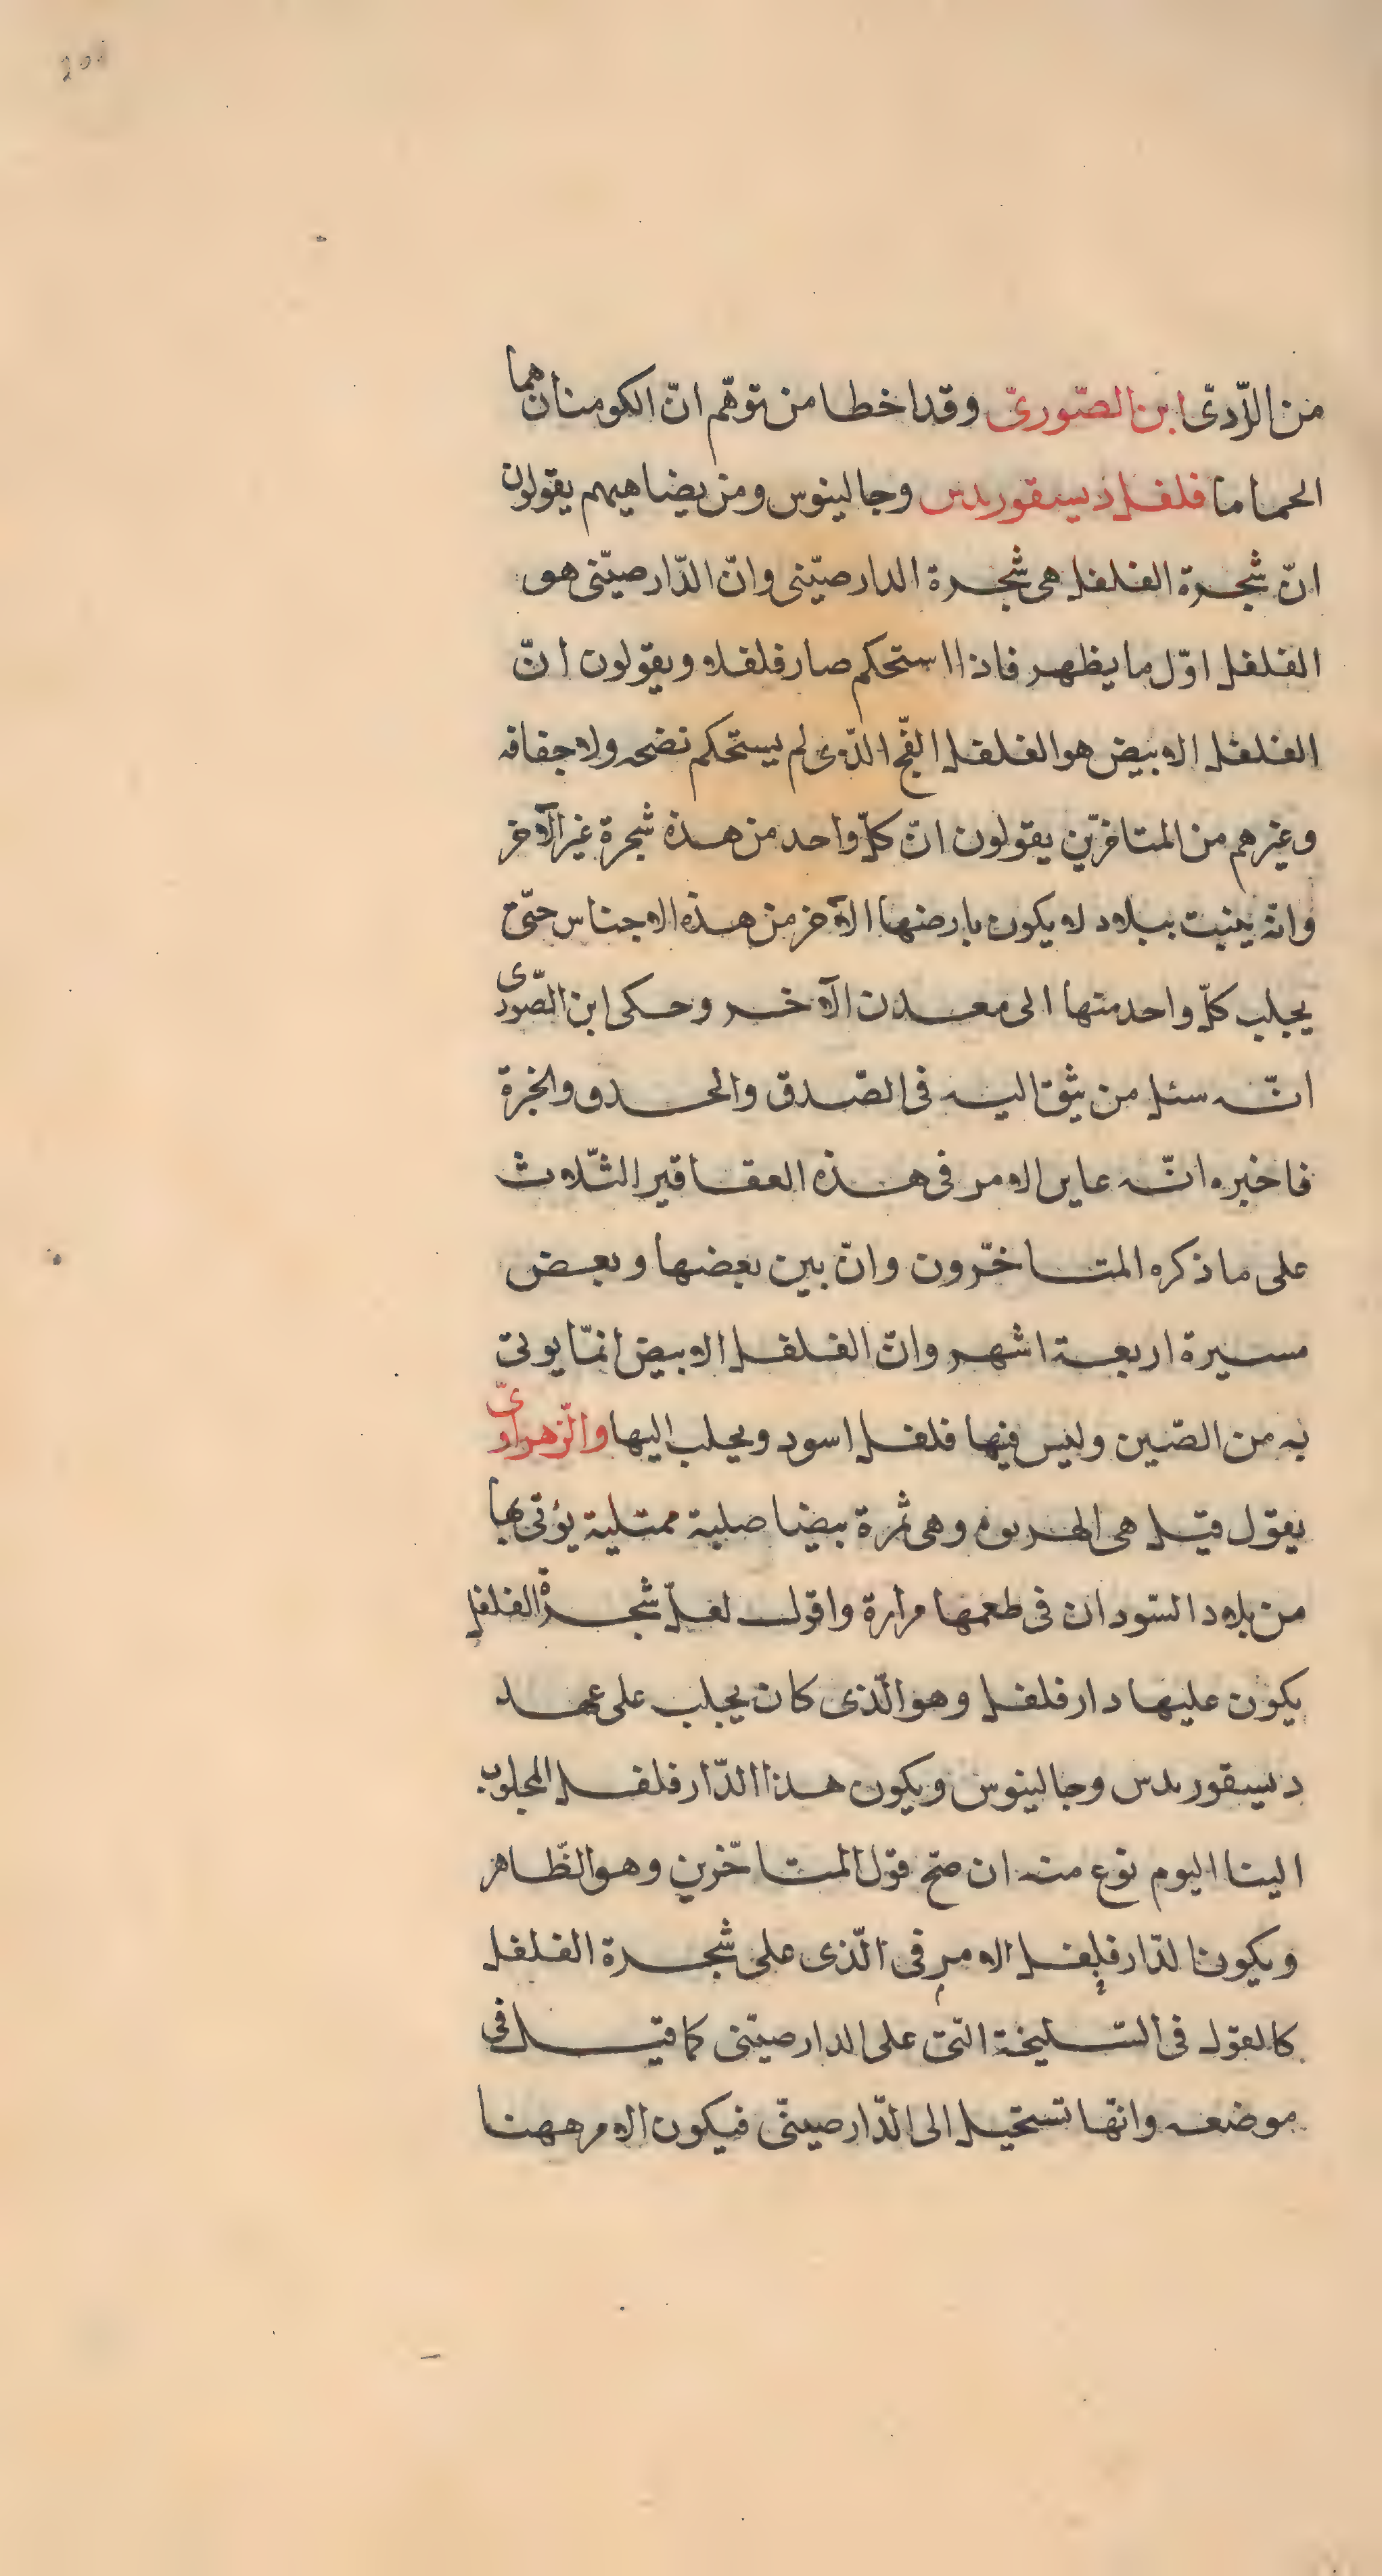 من الرّدىّ ابن الصّورىّ وقد اخطا من توهّم انّ الكومنان هما
الحماما فلفل ديسقوريدس وجالينوس ومن يضاهيهم يقولون
انّ شجرة الفلفل هى شجرة الدارصيّنى وانّ الدّارصيّنى هو
الفلفل اوّل ما يظهر فاذا استحكم صار فلفلا ويقولون انّ
الفلفل الابيض هو الفلفل الفّج الذّى لم يستحكم نضجه ولا جفافه
وغيرهم من المتاخرّين يقولون انّ كلّ واحد من هذه شجرة غير الآخر
وانّه ينبت ببلاد لا يكون بارضها الآخر من هذه الاجناس حتّى
يجلب كلّ واحد منها الى معدن الآخر وحكى ابن الصّورى
انّه سئل من يثق اليه فى الصّدق والحدق والخبرة
فاخبره انّه عاين الامر فى هذه العقاقير الثّلاث
على ما ذكره المتاخّرون وانّ بين بعضها وبعض
مسيرة اربعة اشهر وانّ الفلفل الابيض انمّا يوتى
به من الصّين وليس فيها فلفل اسود ويجلب اليها والزّهراوىّ
يقول قيل هى الهربوه وهى ثمرة بيضا صلبة ممتلية يؤتى بها
من بلاد السّودان فى طعمها مرارة واقول لعلّ شجرة الفلفل
يكون عليها دارفلفل وهو الّذى كان يجلب على عهد
ديسقوريدس وجالينوس ويكون هذا الدّارفلفل المجلوب
الينا اليوم نوع منه ان صحّ قول المتاخّرين وهو الظّاهر
ويكون الدّارفلفل الامر فى الّذى على شجرة الفلفل
كالقول فى السّليخة التّى على الدارصيّنى كما قيل فى
موضعه وانّها تستحيل الى الدّارصينّى فيكون الامر ههنا